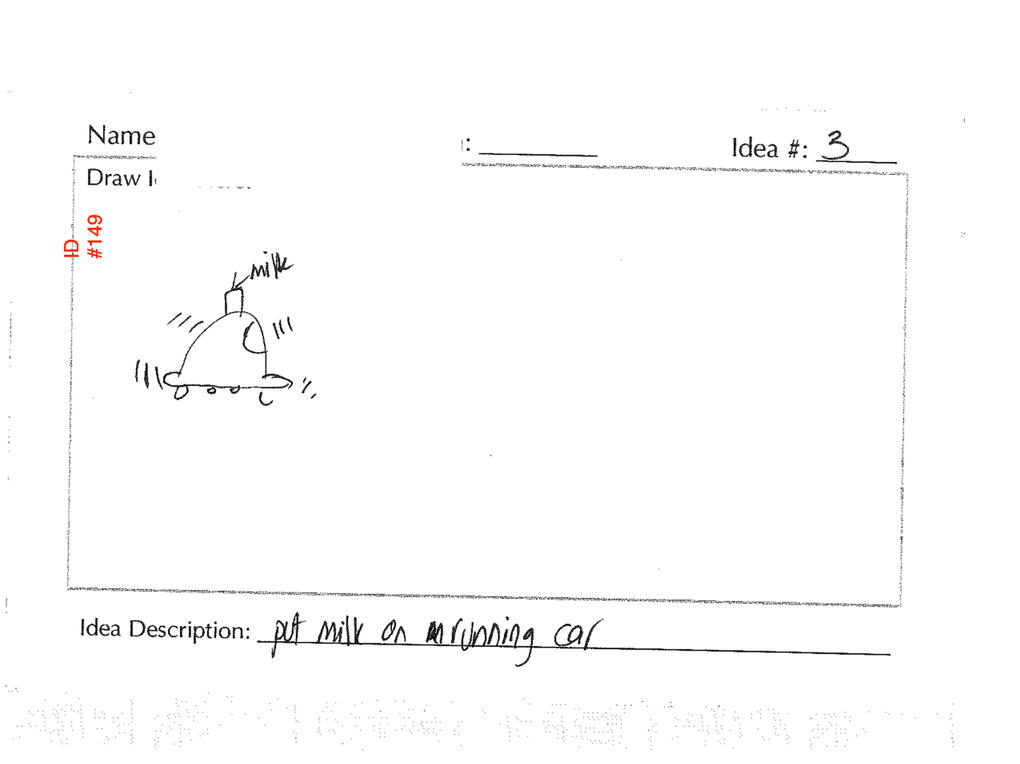 Name : Idea #: 3
Draw I
ID
#149
milk
Idea Description: put milk on running car